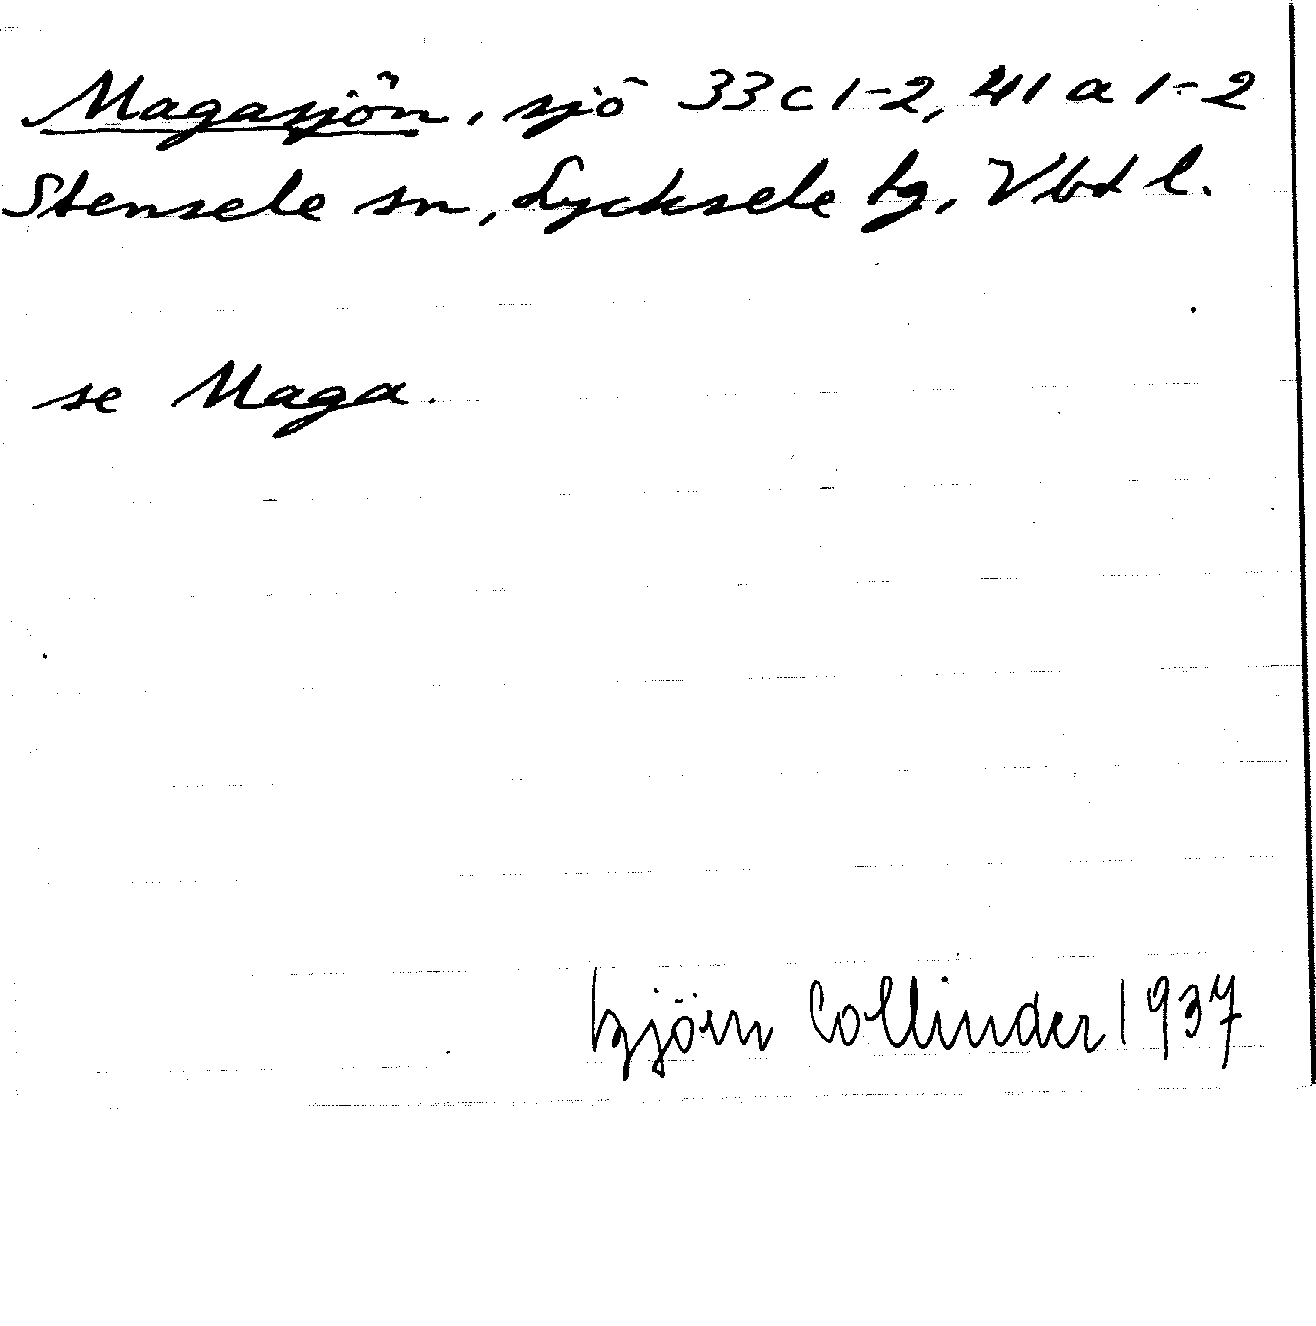 Magasjön, sjö 33 c 1-2, 41 a 1-2
Stensele sn, Lycksele tg, Vbd l.
se Maga.
björn Collinder 1937